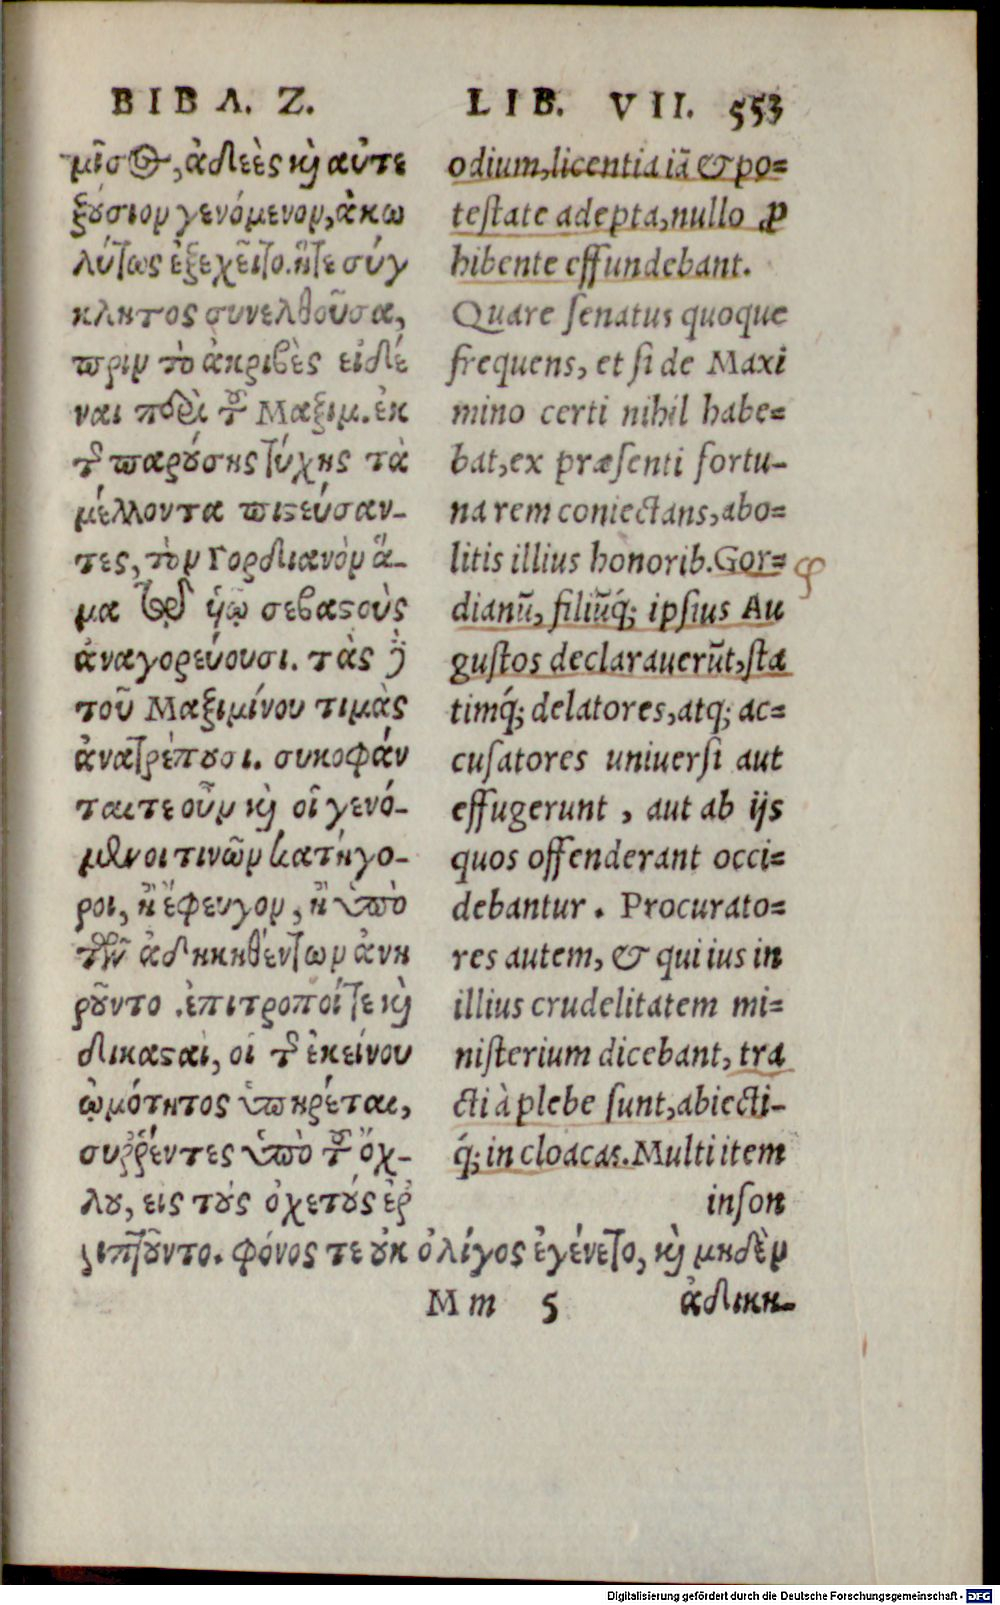 ΒΙΒΛ. Ζ.
μῖσος, ἀδεὲς καὶ αὐτε
ξούσιον γενόμενον, ἀκω
λύτως ἐξεχεῖτο. ἥτε σύγ
κλητος συνελθοῦσα,
πρὶν τὸ ἀκριβὲς εἰδέ
ναι περὶ τοῦ Μαξιμ. ἐκ
τῆς παρούσης τύχης τὰ
μέλλοντα πιστεύσαν-
τες, τὸν Γορδιανὸν ἅ-
μα τῷ υἱῷ σεβαστοὺς
ἀναγορεύουσι. τὰς δὲ
τοῦ Μαξιμίνου τιμὰς
ἀνατρέπουσι. συκοφάν
ται τε οὖν καὶ οἱ γενό-
μενοι τινῶν κατήγο-
ροι, ἢ ἔφευγον, ἢ ὑπὸ
τῶν ἀδηκηθέντων ἀνη
ροῦντο. ἐπιτροποί τε καὶ
δικασταὶ, οἱ τῆς ἐκείνου
ὠμότητος ὑπηρέται,
συρέντες ὑπὸ τοῦ ὄχ-
λου, εἰς τοὺς ὀχετοὺς ἐρ
ριπτοῦντο. φόνος τε οὐκ ὀλίγος ἐγένετο, καὶ μηδὲν
LIB. VII. 553
odium, licentia iā & po=
testate adepta, nullo ꝓ
hibente effundebant.
Quare senatus quoque
frequens, et si de Maxi
mino certi nihil habe=
bat, ex præsenti fortu-
na rem coniectans, abo=
litis illius honorib. Gor=
dianū, filiūq́; ipsius Au
gustos declarauerūt, sta
timq́; delatores, atq; ac=
cusatores uniuersi aut
effugerunt, aut ab ijs
quos offenderant occi=
debantur. Procurato=
res autem, & qui ius in
illius crudelitatem mi=
nisterium dicebant, tra
cti à plebe sunt, abiecti-
q́; in cloacas. Multi item
inson
Mm 5 ἀδικη-
Digitalisierung gefördert durch die Deutsche Forschungsgemeinschaft - DFG